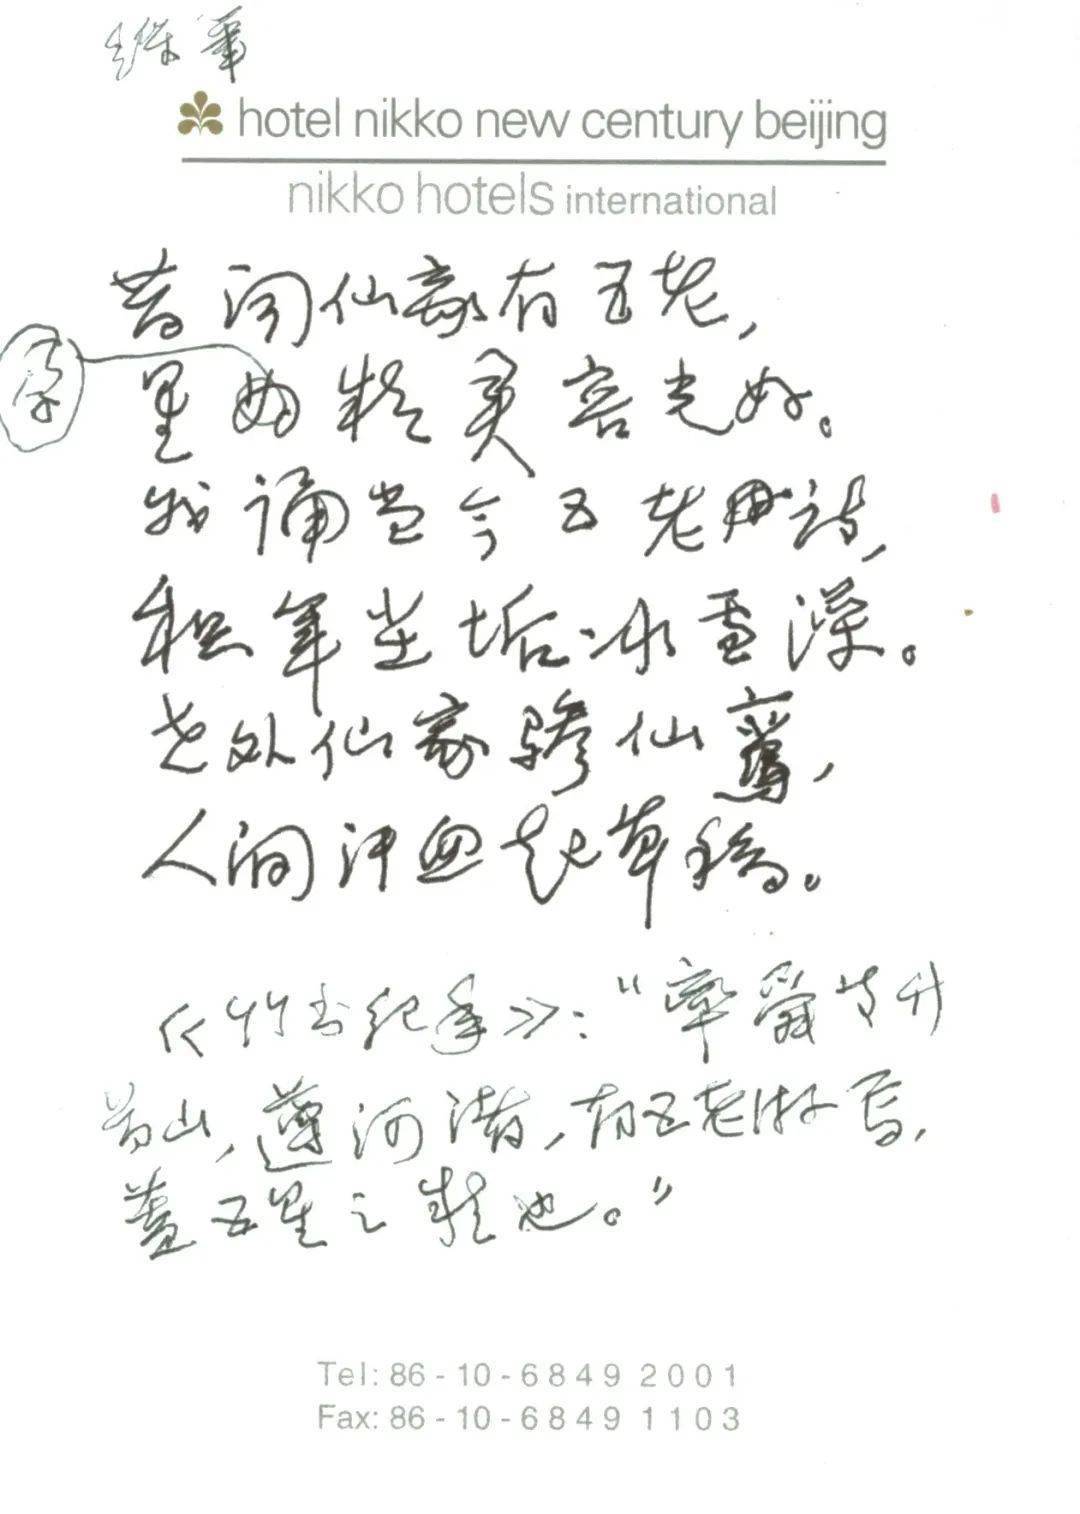 hotel nikko new century beijing
nikko hotels international
昔闻仙家有五老,
孕
星如精灵容光好。
我诵当今五老诗,
积年尘垢冰雪澡。
世外仙家骖仙鸾,
人间汗血起草稿。
《竹书纪年》:“率舜等升
首山,遵河渚,有五老游焉,
盖五星之精也。”
Tel: 86-10-6849 2001
Fax: 86-10-6849 1103